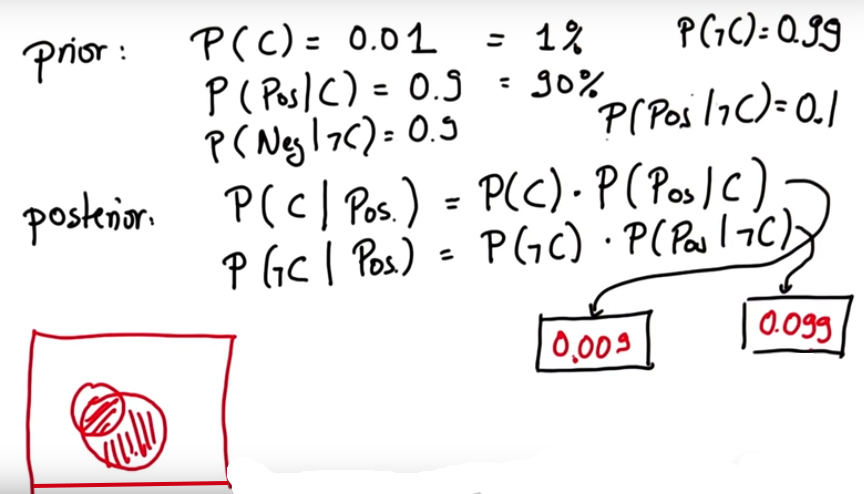 prior: P(C) = 0.01 = 1% P(¬C)=0.99
P(Pos|C) = 0.9 = 90%
P(Neg|¬C)= 0.9 P(Pos|¬C)=0.1
posterior: P(C|Pos.) = P(C)·P(Pos|C)
P(¬C|Pos.) = P(¬C)·P(Pos|¬C)
0.009 0.099